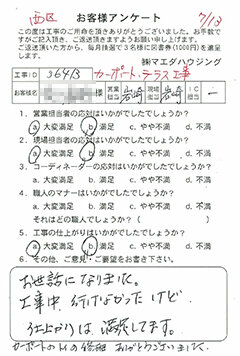 西区 お客様アンケート 7/13
この度は工事のご用命を頂きありがとうございました。お手数で
すがご記入頂き、ご返送頂きますようお願い申し上げます。
ご返送頂いた方から、毎月抽選で3名様に図書券(1000円)を進呈
します。 ㈱マエダハウジング
工事ID 36413 カーポート、テラス工事
お客様名 様 営業担当 岩崎 現場担当 岩崎 IC担当 ー
1. 営業担当者の応対はいかがでしたでしょうか?
a 大変満足 b 満足 c. やや不満 d. 不満
2. 現場担当者の応対はいかがでしたでしょうか?
a 大変満足 b 満足 c. やや不満 d. 不満
3. コーディネーターの応対はいかがでしたでしょうか?
a. 大変満足 b. 満足 c. やや不満 d. 不満
4. 職人のマナーはいかがでしたでしょうか?
a. 大変満足 b. 満足 c. やや不満 d. 不満
それはどの職人でしょうか? ( )
5. 工事の仕上がりはいかがでしたでしょうか?
a 大変満足 b 満足 c. やや不満 d. 不満
6. その他、ご意見・ご要望をお書き下さい。
お世話になりました。
工事中、行けなかったけど
仕上がりは満足してます。
カーポートの 修理 ありがとうございました。